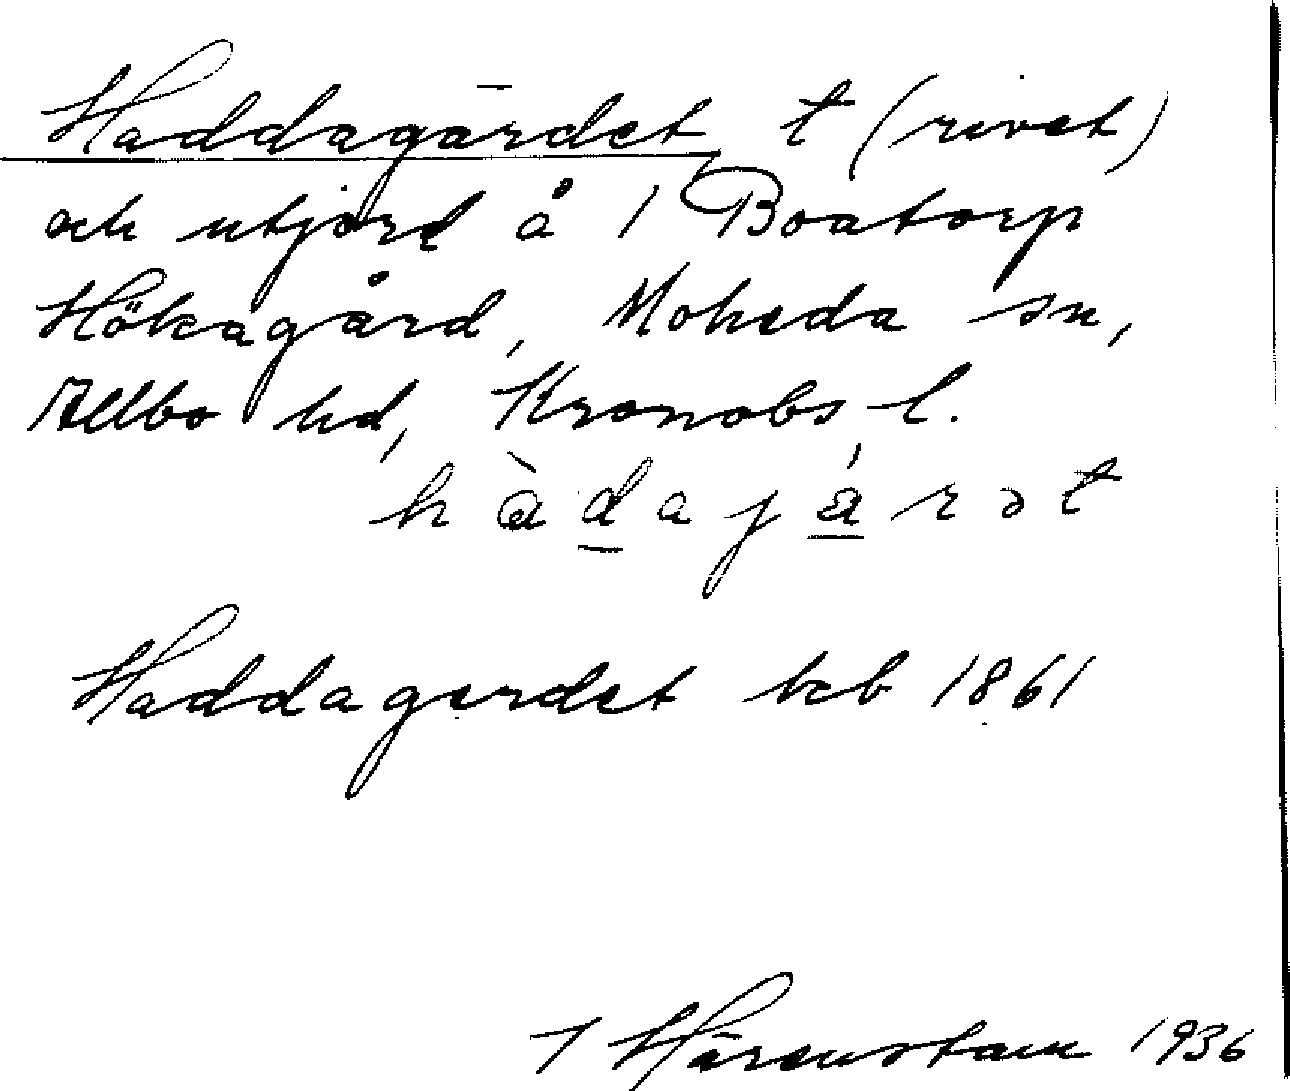 Haddagärdet, t (rivet)
och utjord å 1 Boatorp
Hökagård, Moheda sn,
Allbo hd, Kronobs l.
hàdajárət
Haddagerdet kb 1861
I Härenstam 1936